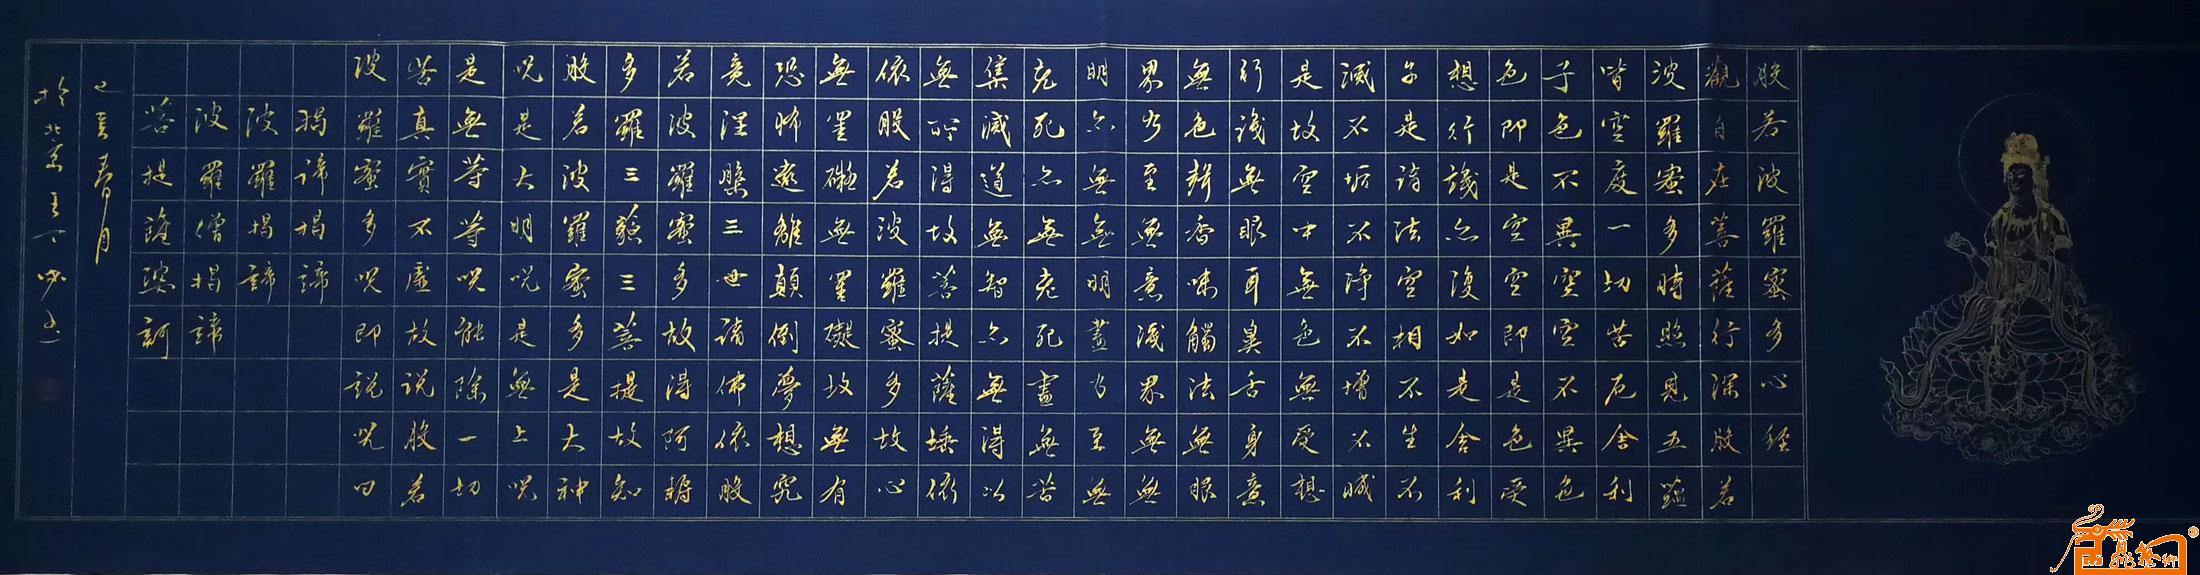 般若波羅蜜多心經
觀自在菩薩行深般若
波羅蜜多時照見五蘊
皆空度一切苦厄舍利
子色不異空空不異色
色即是空空即是色受
想行識亦復如是舍利
子是諸法空相不生不
滅不垢不淨不增不減
是故空中無色無受想
行識無眼耳鼻舌身意
無色聲香味觸法無眼
界乃至無意識界無無
明亦無無明盡乃至無
老死亦無老死盡無苦
集滅道無智亦無得以
無所得故菩提薩埵依
依般若波羅蜜多故心
無罣礙無罣礙故無有
恐怖遠離顛倒夢想究
竟涅槃三世諸佛依般
若波羅蜜多故得阿耨
多羅三藐三菩提故知
般若波羅蜜多是大神
呪是大明呪是無上呪
是無等等呪能除一切
苦真實不虛故說般若
波羅蜜多呪即說呪曰
揭諦揭諦
波羅揭諦
波羅僧揭諦
菩提薩婆訶
己亥春月
於北京